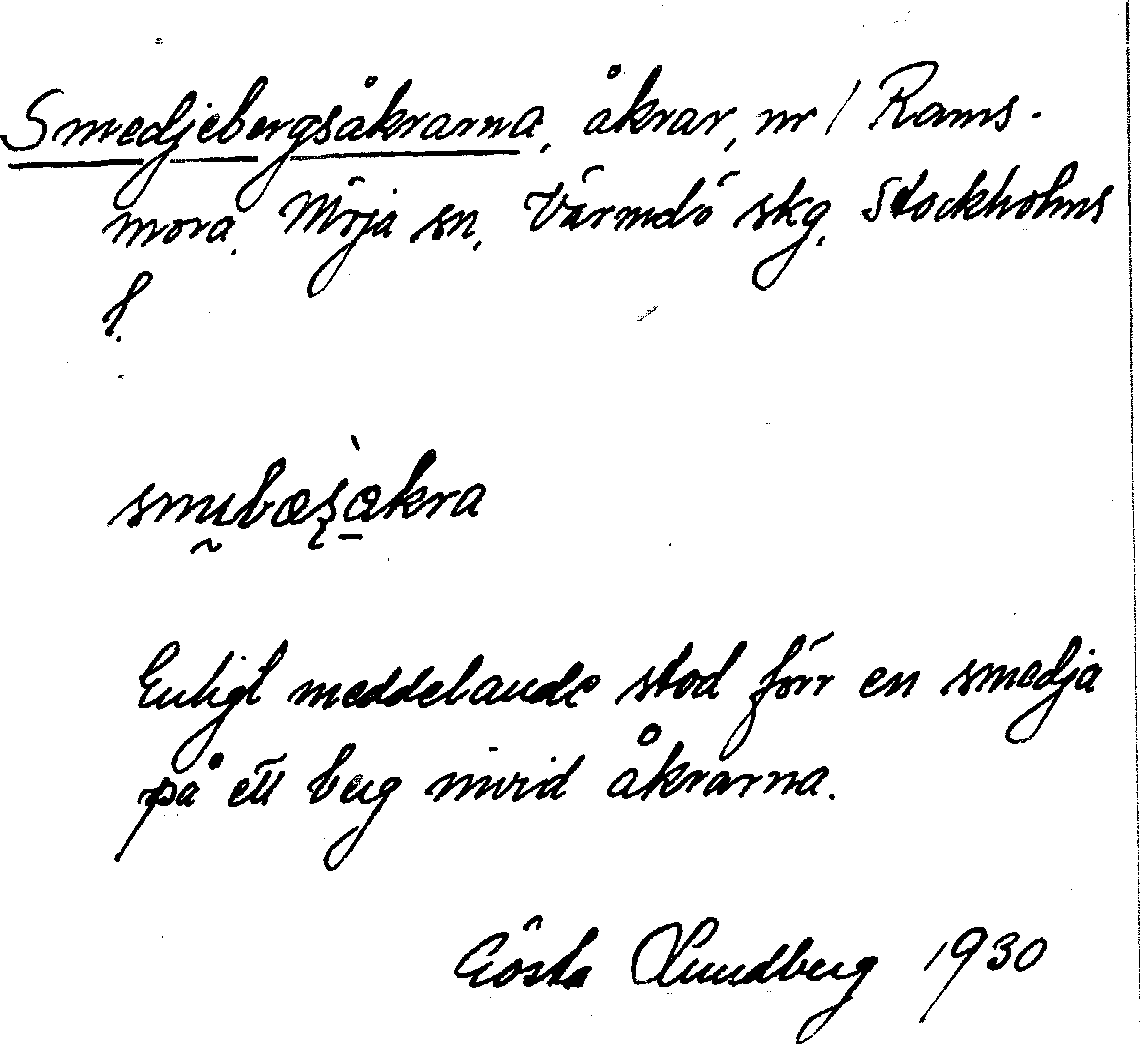 Smedjebergsåkrarna, åkrar, nr 1 Rams-
mora, Möja sn, Värmdö skg, Stockholms
l.
Enligt meddelande stod förr en smedja
på ett berg invid åkrarna.
Gösta Lundberg 1930